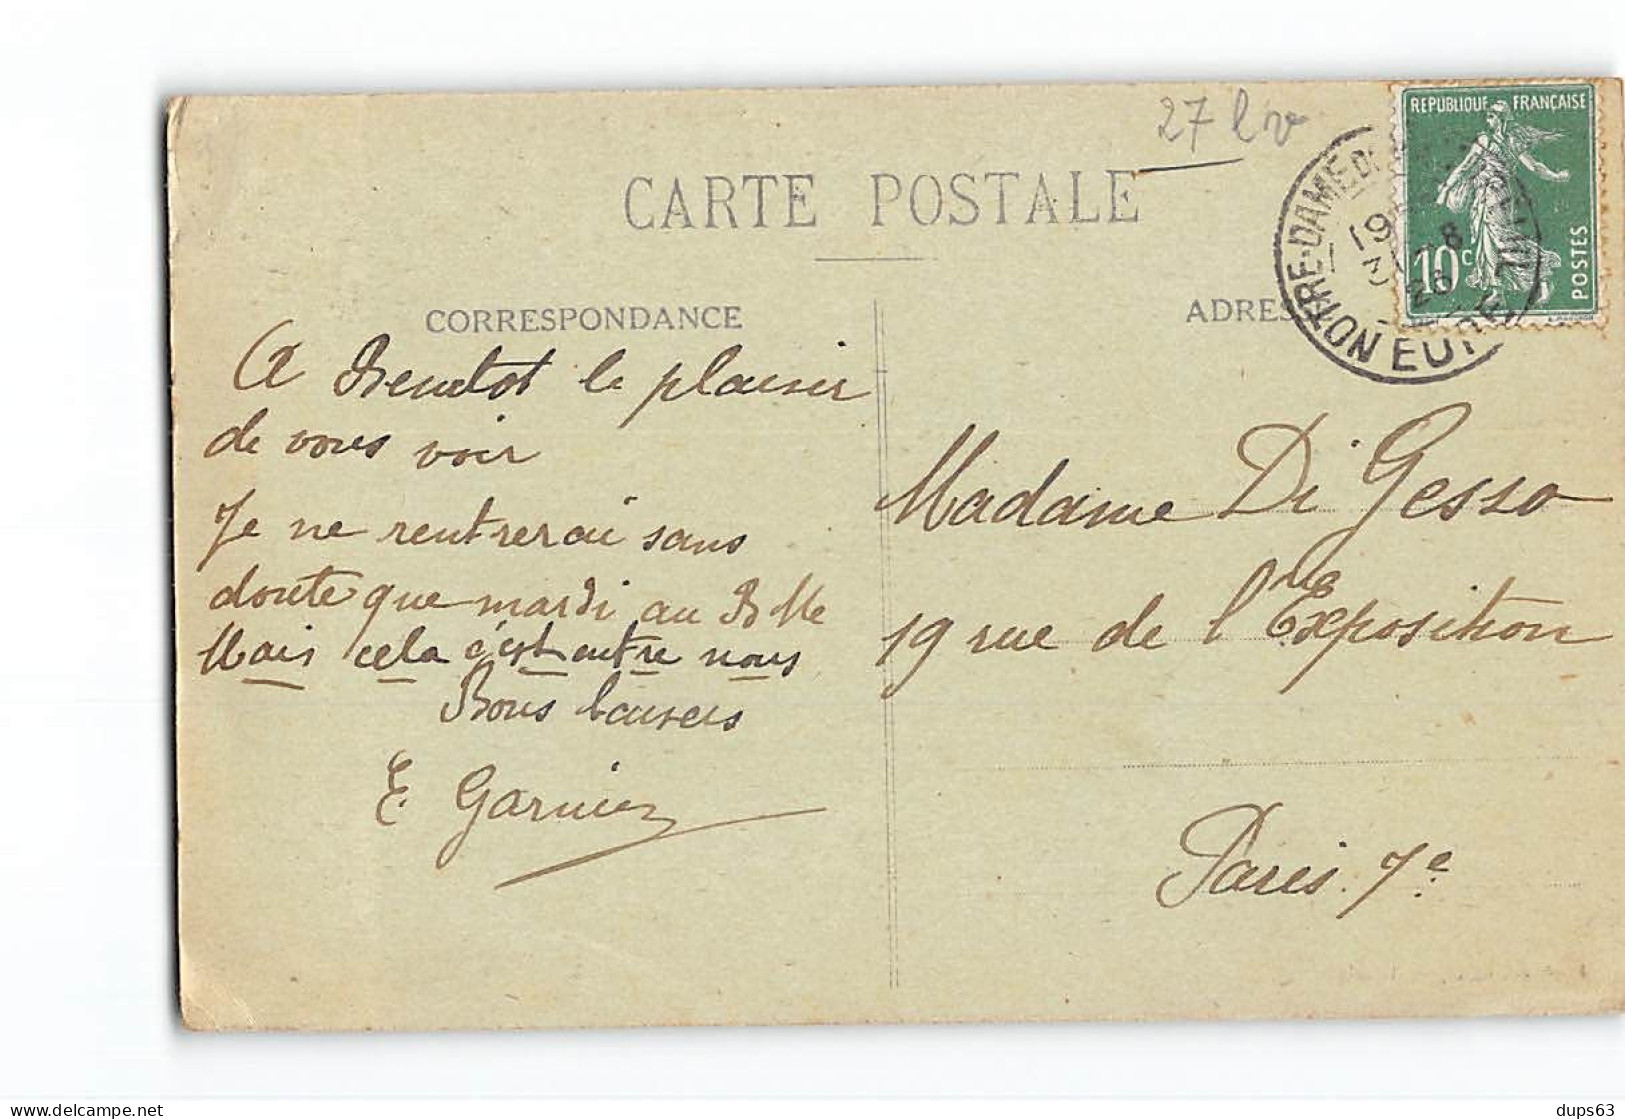 27 lv
CARTE POSTALE
REPUBLIQUE FRANÇAISE
10c
POSTES
TRE-DAME
19
8
3
26
EURE
CORRESPONDANCE
ADRES
A Bientot le plaisir
de vous voir
Je ne rentrerai sans
doute que mardi au B Me
Mais cela c'est entre nous
Bons baisers
E. Garnier
Madame Di Gesso
19 rue de l'Exposition
Paris. 7e
delcampe.net
dups63